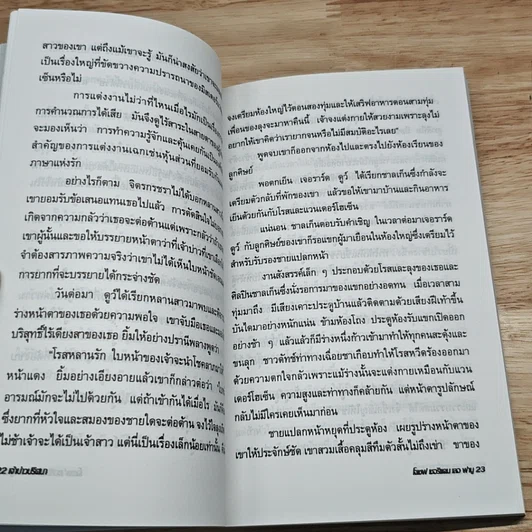 สาวของเขา แต่ถึงแม้เขาจะรู้ มันก็น่าสงสัยว่าเขา
เป็นเรื่องใหญ่ที่ขัดขวางความปรารถนาของมิส
เซ็นหรือไม่
การแต่งงานไม่ว่าที่ไหนเมื่อไรมักเป็นเรื่อง
การคำนวณการได้เสีย มันจึงดูไร้สาระในสายตา
จะมองเห็นว่า การทำความรู้จักและคุ้นเคยกัน
สำคัญของการแต่งงานเฉกเช่นหุ้นส่วนที่ยอมรับ
ภาษาแห่งรัก
อย่างไรก็ตาม จิตรกรชราไม่ได้บอกหลาน
เขายอมรับข้อเสนอแทนเธอไปแล้ว การตัดสินใจ
เกิดจากความกลัวว่าเธอจะต่อต้านแต่เพราะกลัวว่า
เขาผู้นั้นและขอให้บรรยายหน้าตาว่าที่เจ้าบ่าว
จำต้องสารภาพความจริงว่าเขาไม่ได้เห็นใบหน้า
การยากที่จะบรรยายได้กระจ่างชัด
วันต่อมา ดูว์ได้เรียกหลานสาวมาพบและ
ร่างหน้าตาของเธอด้วยความพอใจ เขาจับมือเธอและ
บริสุทธิ์ไร้เดียงสาของเธอ ยิ้มให้อย่างปรานีพลางพูดว่า
"โรสหลานรัก ใบหน้าของเจ้าจะนำโชคลาภ
หน้าแดง ยิ้มอย่างเอียงอายแล้วเขาก็กล่าวต่อว่า
อารมณ์มักจะไม่ไปด้วยกัน แต่ถ้าเข้ากันได้เมื่อไร
ซึ่งยากที่หัวใจและสมองของชายใดจะต้าน จงไว้ใจ
ไม่ช้าเจ้าจะได้เป็นเจ้าสาว แต่นี่เป็นเรื่องเล็กน้อยเท่านั้น
22 เจ้าบ่าวปริศนา
จงเตรียมห้องใหญ่ไว้ตอนสองทุ่มและให้เสริฟอาหารตอนสามทุ่ม
เพื่อนของลุงจะมาหาคืนนี้ เจ้าจงแต่งกายให้สวยงามเพราะลุงไม่
อยากให้เขาคิดว่าเรายากจนหรือไม่มีสมบัติอะไรเลย"
พูดจบเขาก็ออกจากห้องไปและตรงไปยังห้องเรียนของ
ลูกศิษย์
พอตกเย็น เจอราร์ด ดูว์ ได้เรียกชาลเก็นซึ่งกำลังจะ
เตรียมตัวกลับที่พักของเขา แล้วขอให้เขามาบ้านและกินอาหาร
เย็นด้วยกันกับโรสและแวนเดอร์โฮเซ็น
แน่นอน ชาลเก็นตอบรับคำเชิญ ในเวลาต่อมาเจอราร์ด
ดูว์ กับลูกศิษย์ของเขาก็รอแขกผู้มาเยือนในห้องใหญ่ซึ่งเตรียมไว้
สำหรับรับรองชายแปลกหน้า
งานสังสรรค์เล็ก ๆ ประกอบด้วยโรสและลุงของเธอและ
ศิลปินชาลเก็นซึ่งนั่งรอการมาของแขกอย่างอดทน เมื่อเวลาสาม
ทุ่มมาถึง มีเสียงเคาะประตูบ้านแล้วติดตามด้วยเสียงฝีเท้าขึ้น
บันไดมาอย่างหนักแน่น ข้ามห้องโถง ประตูห้องรับแขกเปิดออก
อย่างช้า ๆ แล้วแล้วก็มีร่างหนึ่งก้าวเข้ามาทำให้ทุกคนสะดุ้งและ
ขนลุก ชาวดัทช์ท่าทางเฉื่อยชาเกือบทำให้โรสหวีดร้องออกมา
ด้วยความตกใจกลัวเพราะแม้ร่างนั้นจะแต่งกายเหมือนกับแวน
เดอร์โฮเซ็น ความสูงและท่าทางก็คล้ายกัน แต่หน้าตารูปลักษณ์
กลับไม่มีใครเคยเห็นมาก่อน
ชายแปลกหน้าหยุดที่ประตูห้อง เผยรูปร่างหน้าตาของ
เขาให้ประจักษ์ชัด เขาสวมเสื้อคลุมสีทึมตัวสั้นไม่ถึงเข่า ขาของ
โจเซฟ เชอริแดน เลอ ฟานู 23